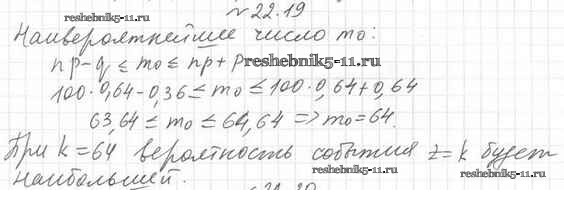 №22.19
reshebnik5-11.ru
Наивероятнейшее число m₀:
np-q ≤ m₀ ≤ np+p
reshebnik5-11.ru
100·0,64-0,36 ≤ m₀ ≤ 100·0,64+0,64
63,64 ≤ m₀ ≤ 64,64 => m₀=64.
При k=64 вероятность события z=k будет
reshebnik5-11.ru reshebnik5-11.ru
наибольшей.